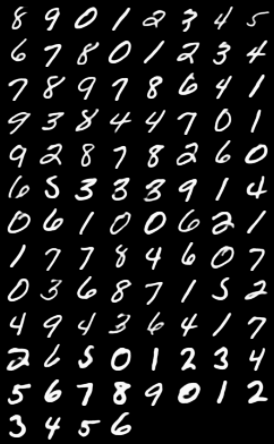 8 9 0 1 2 3 4 5
6 7 8 0 1 2 3 4
7 8 9 7 8 6 4 1
9 3 8 4 4 7 0 1
9 2 8 7 8 2 6 0
6 5 3 3 3 9 1 4
0 6 1 0 0 6 2 1
1 7 7 8 4 6 0 7
0 3 6 8 7 1 5 2
4 9 4 3 6 4 1 7
2 6 5 0 1 2 3 4
5 6 7 8 9 0 1 2
3 4 5 6